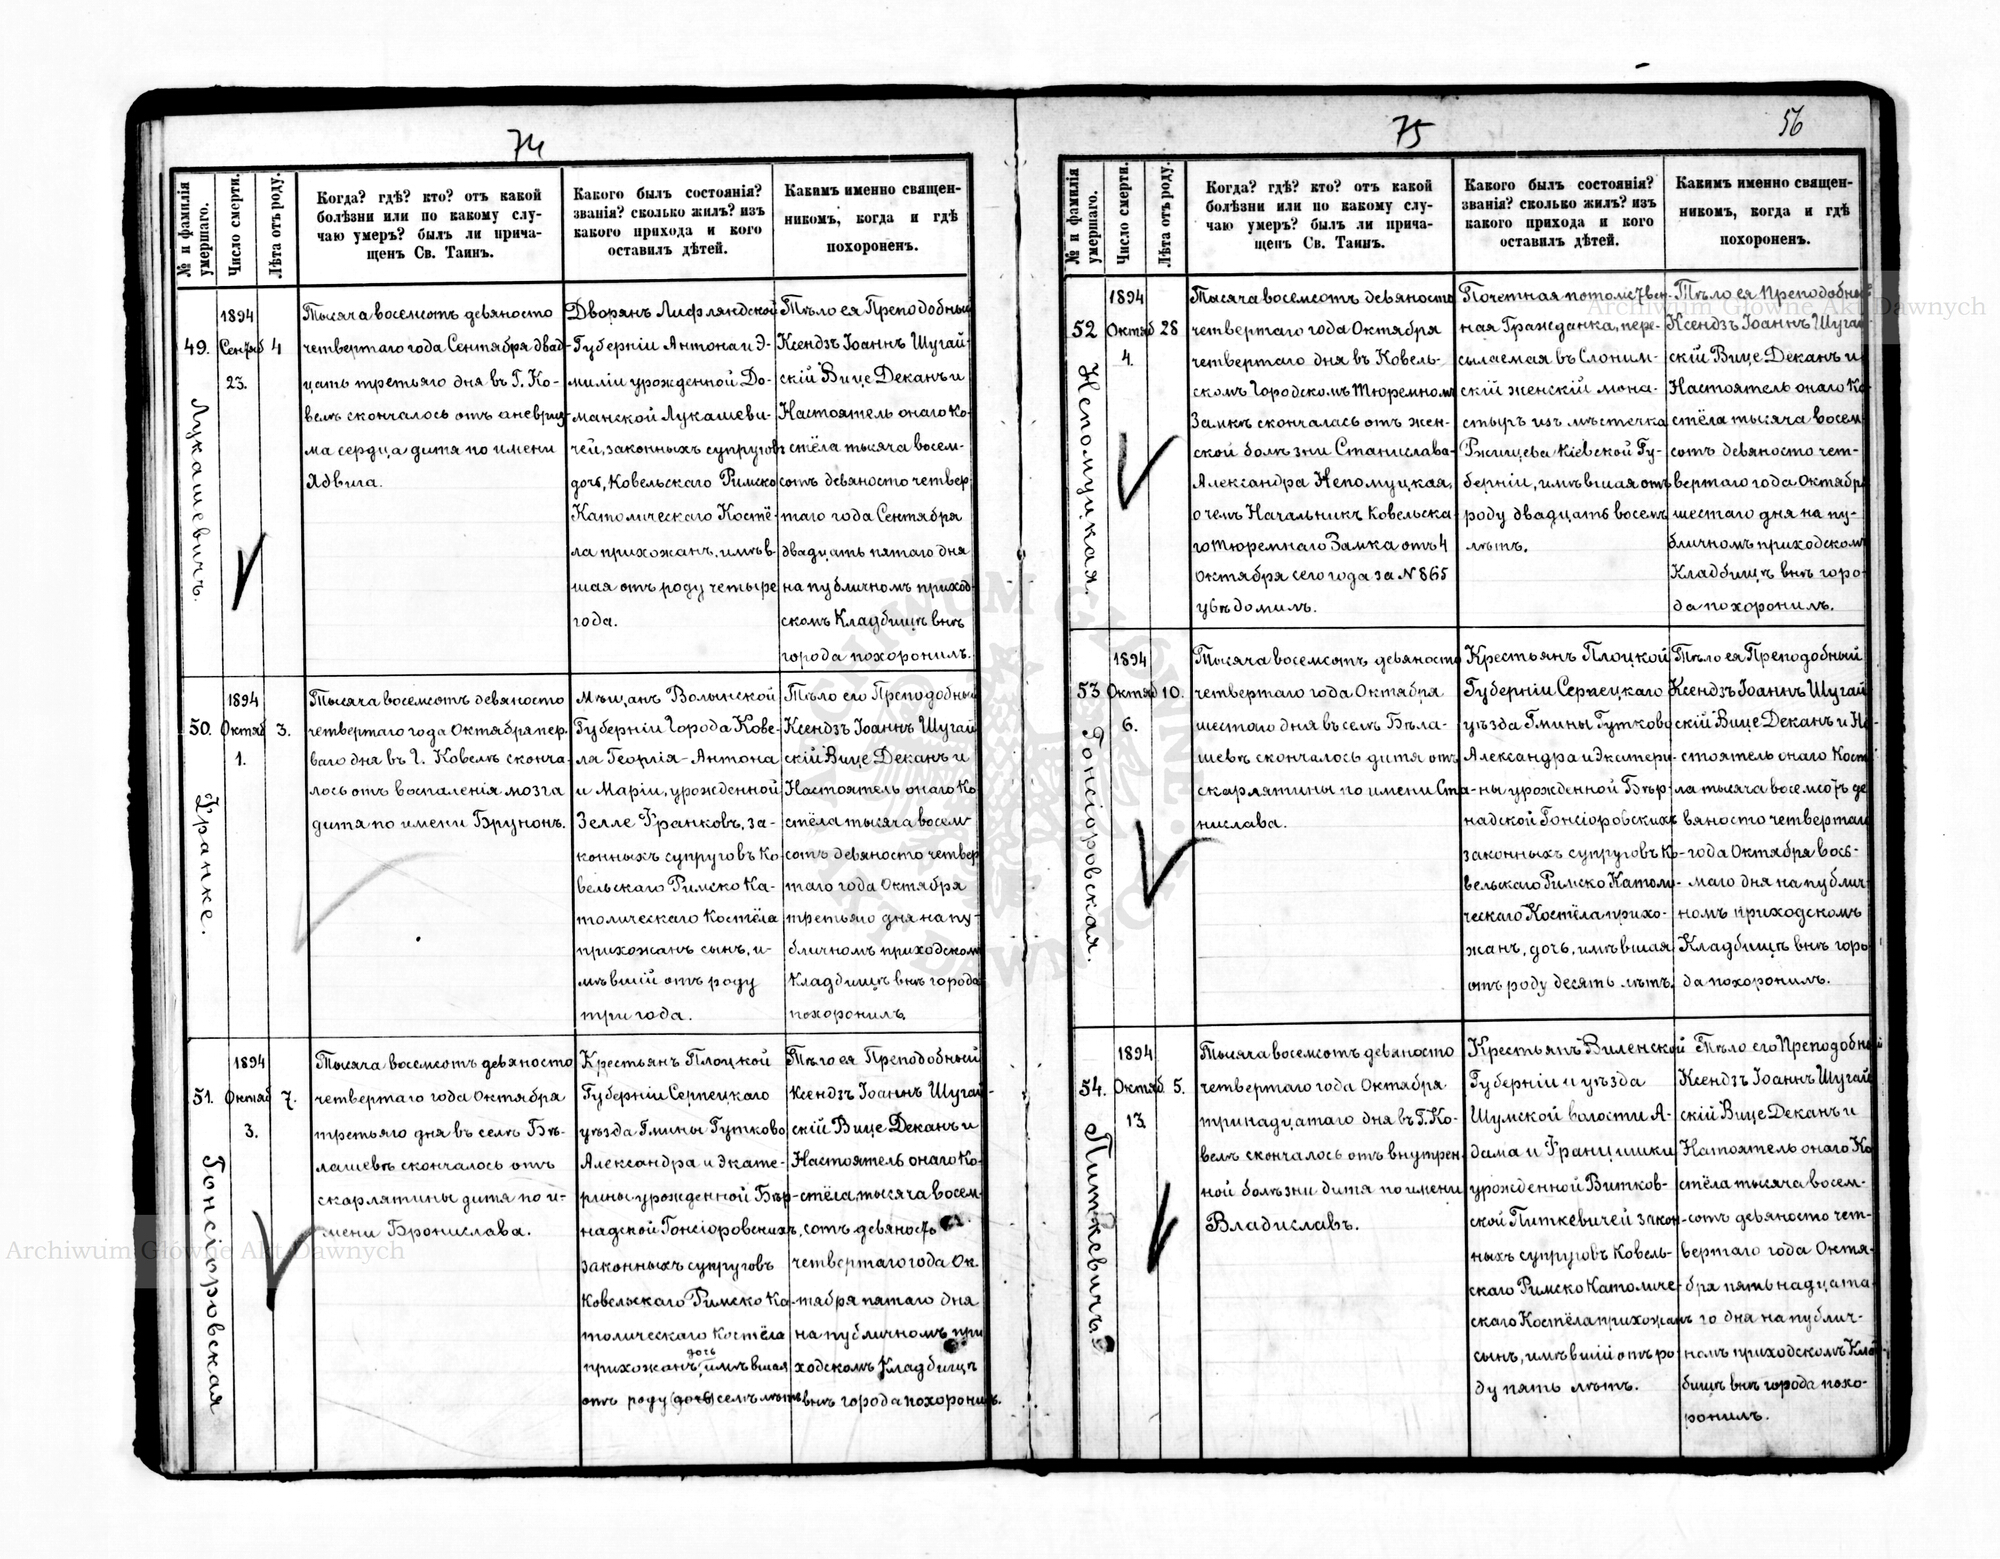 74
№ и фамилія умершаго.
Число смерти.
Лѣта отъ роду.
Когда? гдѣ? кто? отъ какой
болѣзни или по какому слу-
чаю умеръ? былъ ли прича-
щенъ Св. Таинъ.
Какого былъ состоянія?
званія? сколько жилъ? изъ
какого прихода и кого
оставилъ дѣтей.
Какимъ именно священ-
никомъ, когда и гдѣ
похороненъ.
49.
Лукашевичъ.
1894
Сентяб
23.
4
Тысяча восемсотъ девяносто
четвертаго года Сентября двад-
цать третьяго дня въ Г. Ко-
велѣ скончалось отъ аневриз-
ма сердца дитя по имени
Ядвига.
Дворянъ Лифляндской
Губерніи Антона и Э-
миліи урожденной До-
манской Лукашеви-
чей, законныхъ супруговъ
дочь, Ковельскаго Римско
Католическаго Костё-
ла прихожанъ, имѣв-
шая отъ роду четыре
года.
Тѣло ея Преподобный
Ксендзъ Іоаннъ Шугай-
скій Вице Деканъ и
Настоятель онаго Ко-
стёла тысяча восем-
сотъ девяносто четвер-
таго года Сентября
двадцать пятаго дня
на публичномъ приход-
скомъ Кладбищѣ внѣ
города похоронилъ.
50.
Франке.
1894
Октяб
1.
3.
Тысяча восемсотъ девяносто
четвертаго года Октября пер-
ваго дня въ Г. Ковелѣ сконча-
лось отъ воспаленія мозга
дитя по имени Брунонъ.
Мѣщанъ Волынской
Губерніи Города Кове-
ля Георгія-Антона
и Маріи, урожденной
Зелле Франковъ, за-
конныхъ супруговъ Ко-
вельскаго Римско Ка-
толическаго Костёла
прихожанъ сынъ, и-
мѣвшій отъ роду
три года.
Тѣло его Преподобный
Ксендзъ Іоаннъ Шугай
скій Вице Деканъ и
Настоятель онаго Ко
стёла тысяча восем
сотъ девяносто четвер
таго года Октября
третьяго дня на пу-
бличномъ приходскомъ
Кладбищѣ внѣ города
похоронилъ
51.
Гонсіоровская
1894
Октяб
3.
7.
Тысяча восемсотъ девяносто
четвертаго года Октября
третьяго дня въ селѣ Бѣ-
лашевѣ скончалось отъ
скарлятины дитя по и-
мени Бронислава.
Крестьянъ Плоцкой
Губерніи Серпецкаго
уѣзда Гмины Гутково
Александра и Экате-
рины урожденной Бѣр-
надской Гонсіоровскихъ,
законныхъ супруговъ
Ковельскаго Римско Ка-
толическаго Костёла
прихожанъ, дочь имѣвшая
отъ роду (дочь) семъ лѣтъ.
Тѣло ея Преподобный
Ксендзъ Іоаннъ Шугай-
скій Вице Деканъ и
Настоятель онаго Ко-
стёла, тысяча восем-
сотъ девяность
четвертаго года Ок-
тября пятаго дня
на публичномъ при
ходскомъ Кладбищѣ
внѣ города похоронилъ.
75
56
№ и фамилія умершаго.
Число смерти.
Лѣта отъ роду.
Когда? гдѣ? кто? отъ какой
болѣзни или по какому слу-
чаю умеръ? былъ ли прича-
щенъ Св. Таинъ.
Какого былъ состоянія?
званія? сколько жилъ? изъ
какого прихода и кого
оставилъ дѣтей.
Какимъ именно священ-
никомъ, когда и гдѣ
похороненъ.
52
Непомуцкая.
1894
Октяб
4.
28
Тысяча восемсотъ девяносто
четвертаго года Октября
четвертаго дня въ Ковель-
скомъ Городскомъ Тюремномъ
Замкѣ скончалась отъ жен-
ской болѣзни Станислава-
Александра Непомуцкая,
о чемъ Начальникъ Ковельска-
го Тюремнаго Замка отъ 4
Октября сего года за № 865
увѣдомилъ.
Почетная потомствен-
ная Гражданка, пере-
сылаемая въ Слоним-
скій женскій мона-
стырь изъ мѣстечка
Ржищева Кіевской Гу-
берніи, имѣвшая отъ
роду двадцать восемъ
лѣтъ.
Тѣло ея Преподобный
Ксендзъ Іоаннъ Шугай-
скій Вице Деканъ и
Настоятель онаго Ко
стёла тысяча восем
сотъ девяносто чет-
вертаго года Октября
шестаго дня на пу-
бличномъ приходскомъ
Кладбищѣ внѣ горо-
да похоронилъ.
53
Гонсіоровская.
1894
Октяб
6.
10.
Тысяча восемсотъ девяносто
четвертаго года Октября
шестаго дня въ селѣ Бѣла-
шевѣ скончалось дитя отъ
скарлятины по имени Ста-
нислава.
Крестьянъ Плоцкой
Губерніи Серпецкаго
уѣзда Гмины Гутково
Александра и Экатери-
ны урожденной Бѣр-
надской Гонсіоровскихъ
законныхъ супруговъ Ко-
вельскаго Римско Католи-
ческаго Костёла прихо-
жанъ, дочь, имѣвшая
отъ роду десять лѣтъ.
Тѣло ея Преподобный
Ксендзъ Іоаннъ Шугай
скій Вице Деканъ и На-
стоятель онаго Костё
ла тысяча восемсотъ де
вяносто четвертаго
года Октября вось-
маго дня на публич-
номъ приходскомъ
Кладбищѣ внѣ горо
да похоронилъ.
54.
Питкевичъ.
1894
Октяб
13.
5.
Тысяча восемсотъ девяносто
четвертаго года Октября
тринадцатаго дня въ Г. Ко-
велѣ скончалось отъ внутрен-
ной болѣзни дитя по имени
Владиславъ.
Крестьянъ Виленской
Губерніи и уѣзда
Шумской волости А-
дама и Францишки
урожденной Витков-
ской Питкевичей закон-
ныхъ супруговъ Ковель-
скаго Римско Католиче-
скаго Костёла прихожанъ
сынъ, имѣвшій отъ ро-
ду пять лѣтъ.
Тѣло его Преподобный
Ксендзъ Іоаннъ Шугай
скій Вице Деканъ и
Настоятель онаго Ко
стёла тысяча восем-
сотъ девяносто чет-
вертаго года Октя-
бря пятьнадцата-
го дня на публич-
номъ приходскомъ Клад
бищѣ внѣ города похо-
ронилъ.
Archiwum Główne Akt Dawnych
Archiwum Główne Akt Dawnych
ARCHIWUM GŁÓWNE AKT DAWNYCH